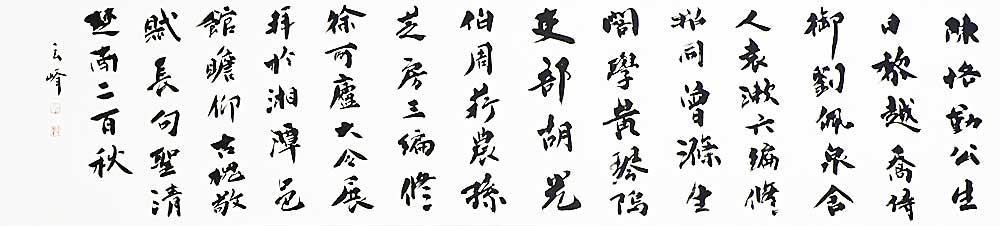 陳恪勤公生
日黎越喬侍
御劉佩泉舍
人袁漱六編修
招同曾滌生
閣學黃琴隖
吏部胡光
伯周荇農孫
芝房三編修
徐可廬大令展
拜於湘潭邑
館瞻仰古槐敬
賦長句聖清
南二百秋
云峰